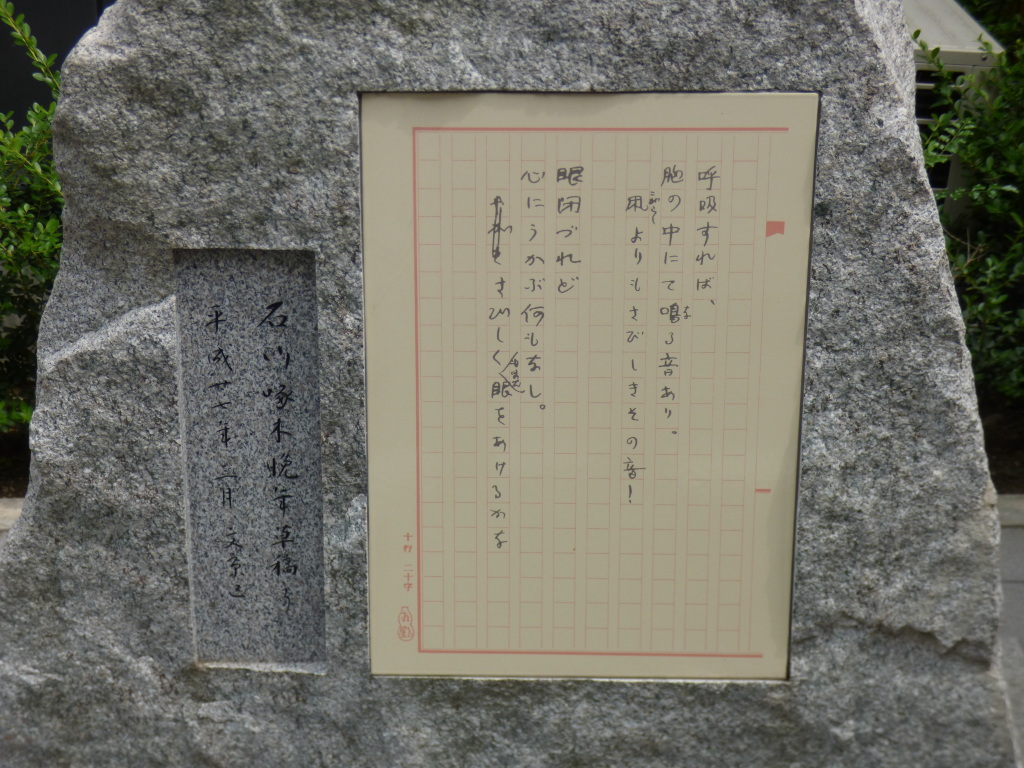 呼吸すれば、
胸の中にて鳴る音あり。
な
凩よりもさびしきその音!
こがらし
眼閉づれど
心にうかぶ何もなし。
さびしくもまた眼をあけるかな
十行 二十字
石川啄木晩年草稿より
平成廿七年三月 文京区